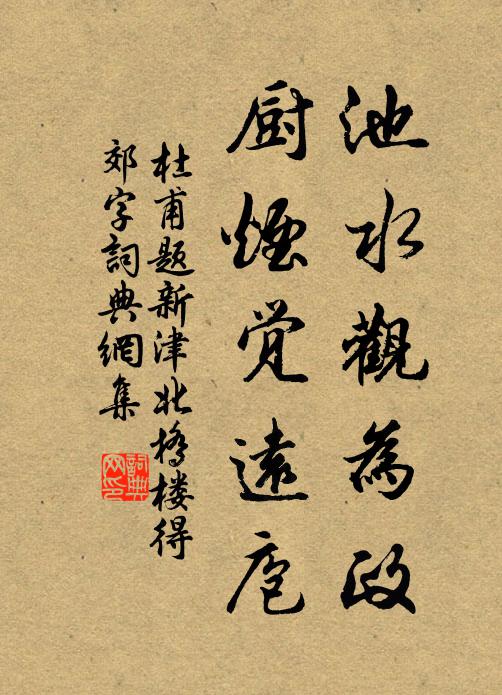 池水觀為政
厨煙覚遠庖
杜甫題新津北橋楼得
郊字詞典網集
詞典
网印